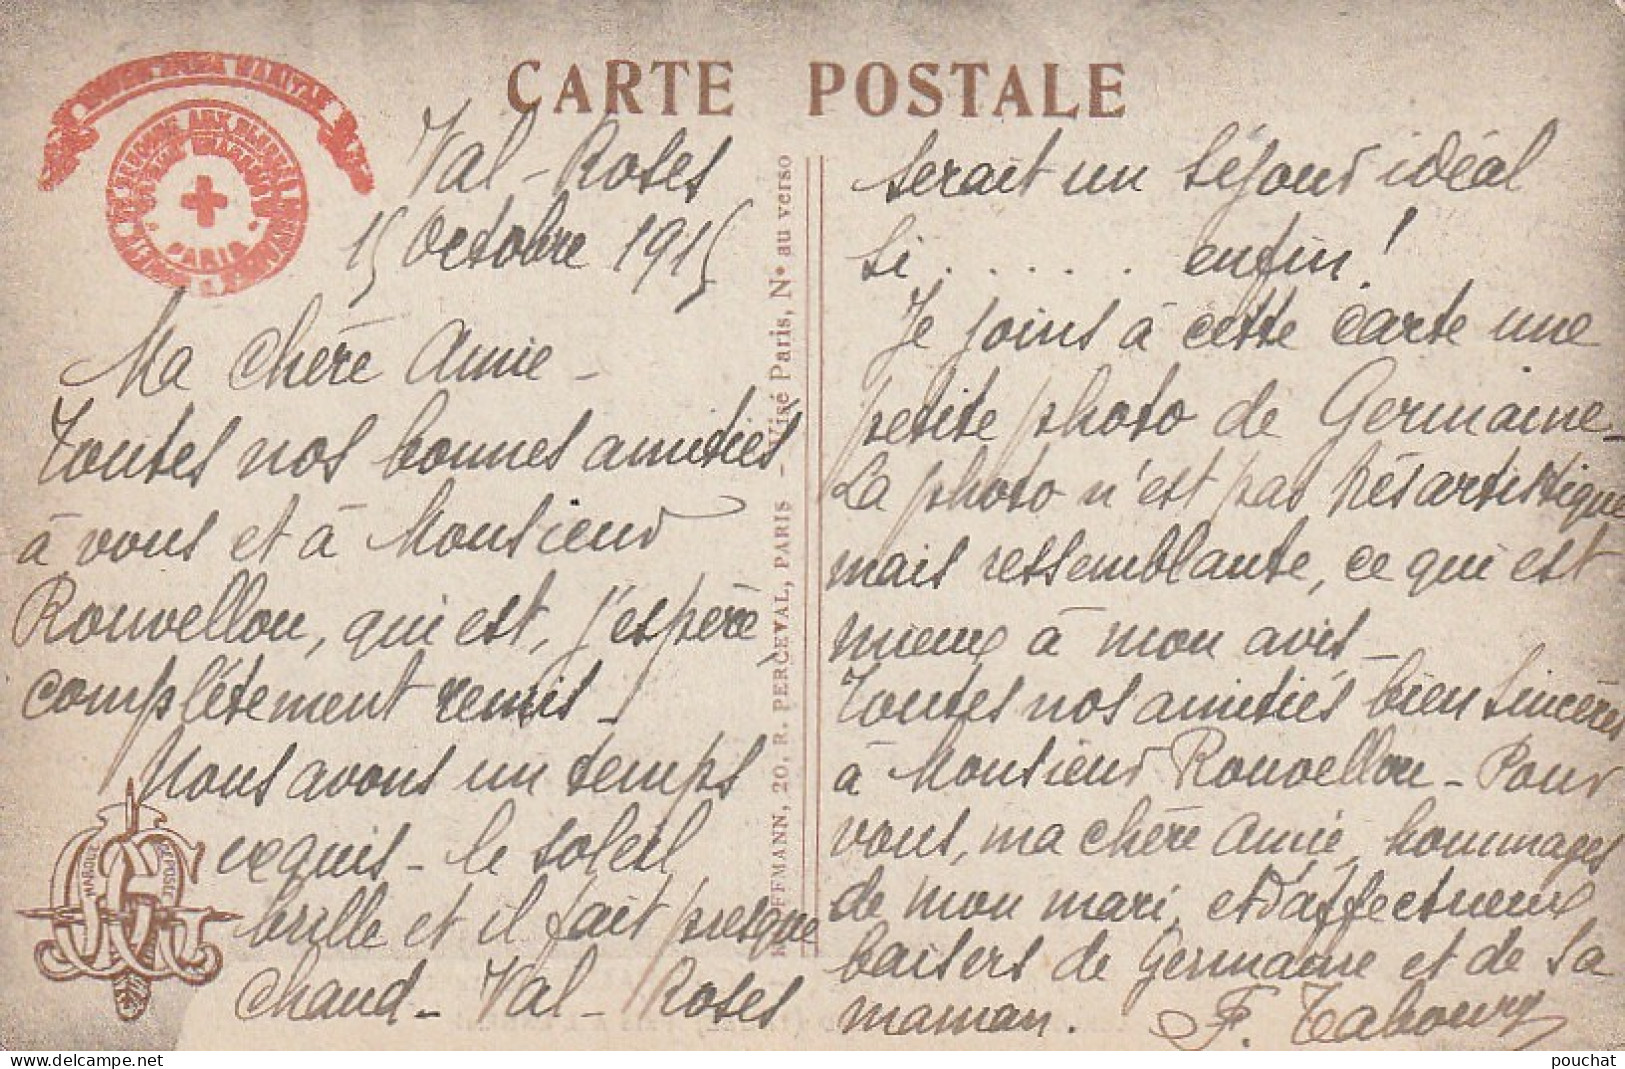 CARTE POSTALE
Val-Roses
15 Octobre 1915
Ma chère Amie -
Toutes nos bonnes amitiés
à vous et à Monsieur
Rouvellou, qui est, j'espère
complètement remis -
Nous avons un temps
exquis - le soleil
brille et il fait presque
chaud - Val-Roses
serait un séjour idéal
si . . . . . enfin !
Je joins à cette carte une
petite photo de Germaine -
La photo n'est pas très artistique
mais ressemblante, ce qui est
mieux à mon avis -
Toutes nos amitiés bien sincères
à Monsieur Rouvellou - Pour
vous, ma chère Amie, hommages
de mon mari, et d'affectueux
baisers de Germaine et de sa
maman. F. Taboury
FFMANN, 20, R. PERCEVAL, PARIS - Visé Paris, N° au verso
PARIS
MARQUE
DEPOSEE
pouchat